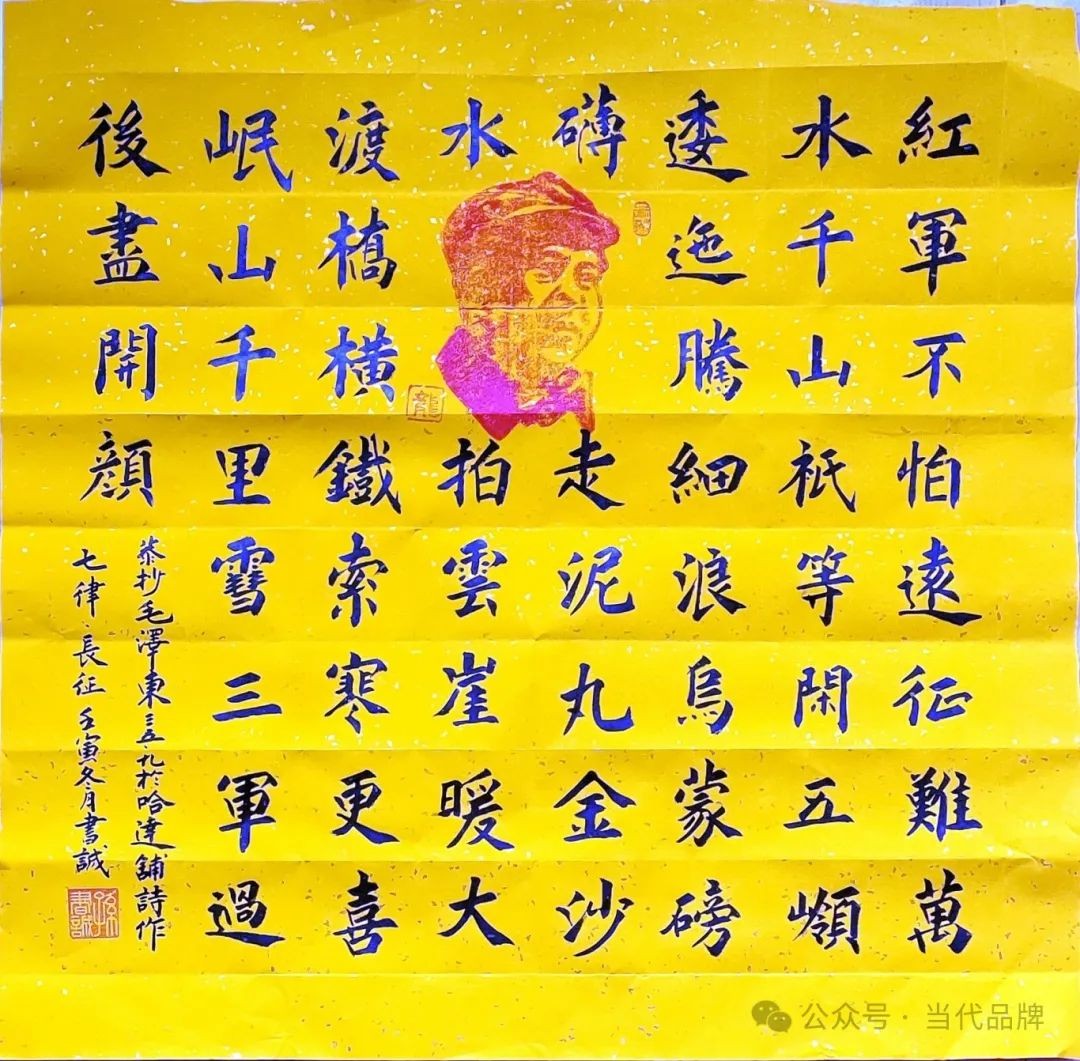 紅軍不怕遠征難萬
水千山祇等閑五嶺
逶迤騰細浪烏蒙磅
礴走泥丸金沙
水拍雲崖暖大
渡橋横鐵索寒更喜
岷山千里雪三軍過
後盡開顔
恭抄毛澤東三五·九於哈達舖詩作
七律·長征 壬寅冬月書誠
孫書誠
龍
公众号·当代品牌